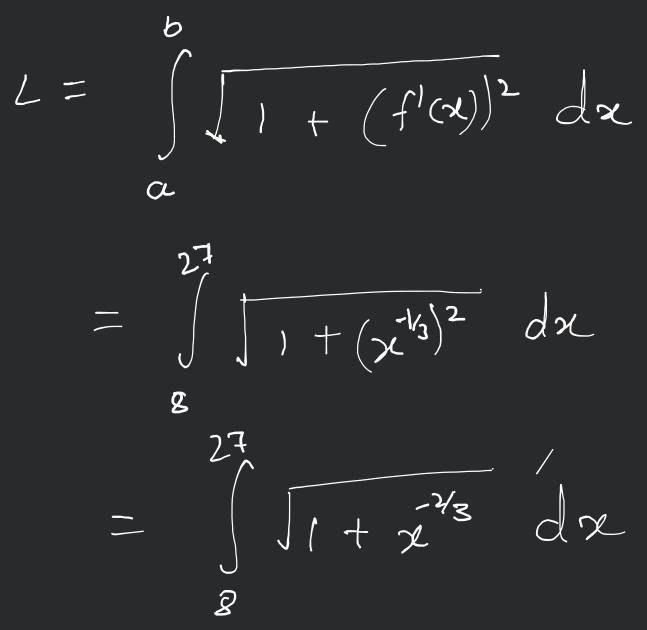 L = ∫_a^b √(1 + (f'(x))²) dx
= ∫_8^27 √(1 + (x^(-1/3))²) dx
= ∫_8^27 √(1 + x^(-2/3)) dx